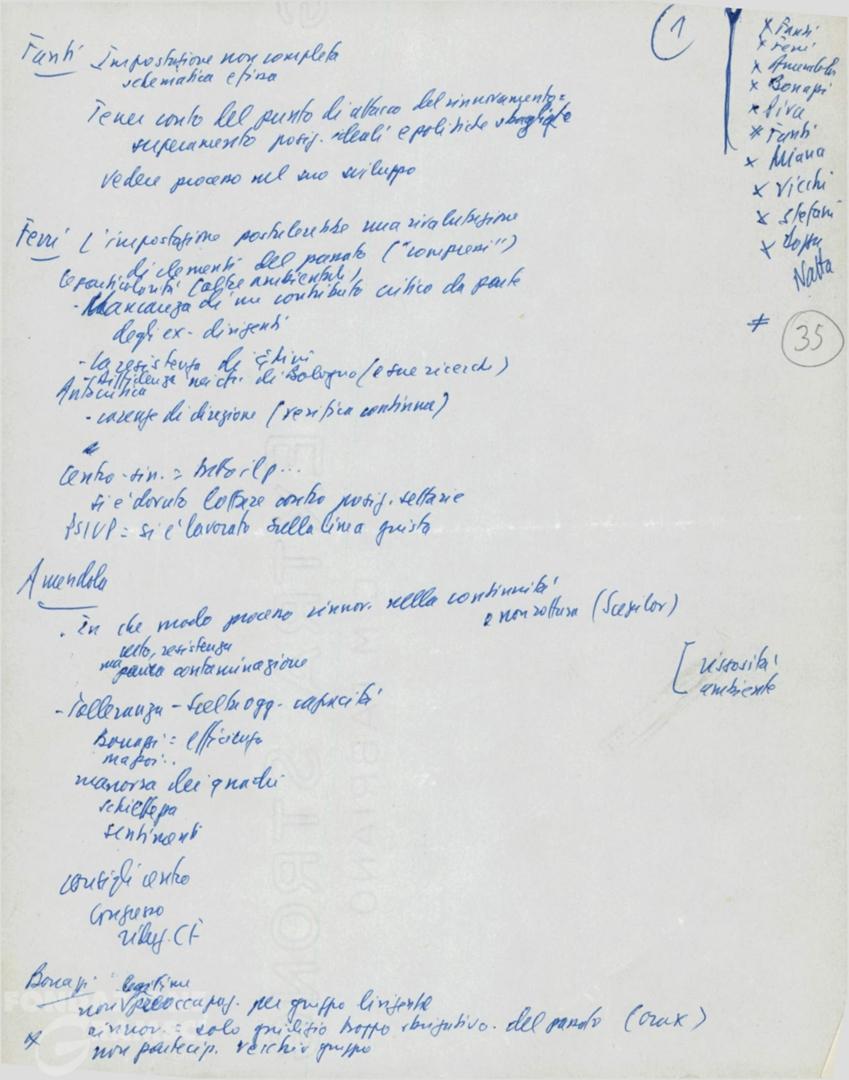 1
x Fanti
x Ferri
x Amendola
x Bonazzi
x Riva
* Fanti
x Miana
x Vicchi
x Stefani
x
Natta
≠ 35
Fanti Impostazione non completa
schematica e fissa
Tener conto del punto di attacco del rinnovamento =
superamento posiz. ideali e politiche sbagliate
vedere processo nel suo sviluppo
Ferri L'impostazione postulerebbe una rivalutazione
di elementi del passato ("compressi")
le particolarità (oltre ambientali)
- Mancanza di un contributo critico da parte
degli ex-dirigenti
- la resistenza di
- Diffidenza nei cfr. di Bologna (e sue ricerche)
Autocritica
- carenze di direzione (verifica continua)
Centro-sin. = tutto il p...
si è dovuto lottare contro posiz. settarie
PSIUP = si è lavorato sulla linea giusta
Amendola
. In che modo processo rinnov. nella continuità
e non rottura (Scezilor)
certo, resistenza
ma contaminazione
[ rissosità
ambiente
- Tolleranza - Scelta ogg. capacità
Bonazzi = efficienza
ma poi..
manovra dei quadri
schiettezza
sentimenti
consigli centro
Congresso
CF
Bonazzi legittime
non preoccupaz. per gruppo dirigente
x rinnov. = solo giudizio troppo sbrigativo. del passato (crax)
non partecip. vecchio gruppo
FONDAZIONE